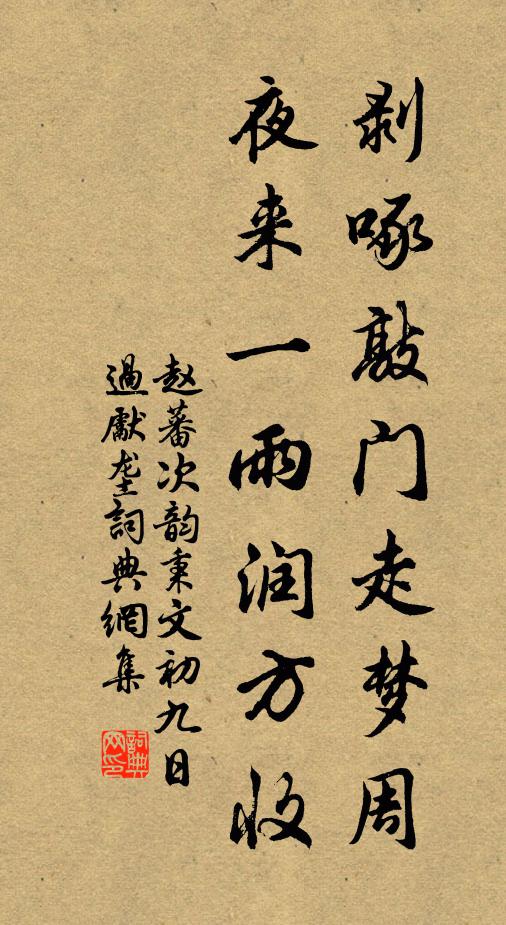 剥啄敲门走梦周
夜来一雨润方收
赵蕃次韵秉文初九日
過獻垄詞典網集
詞典
网印